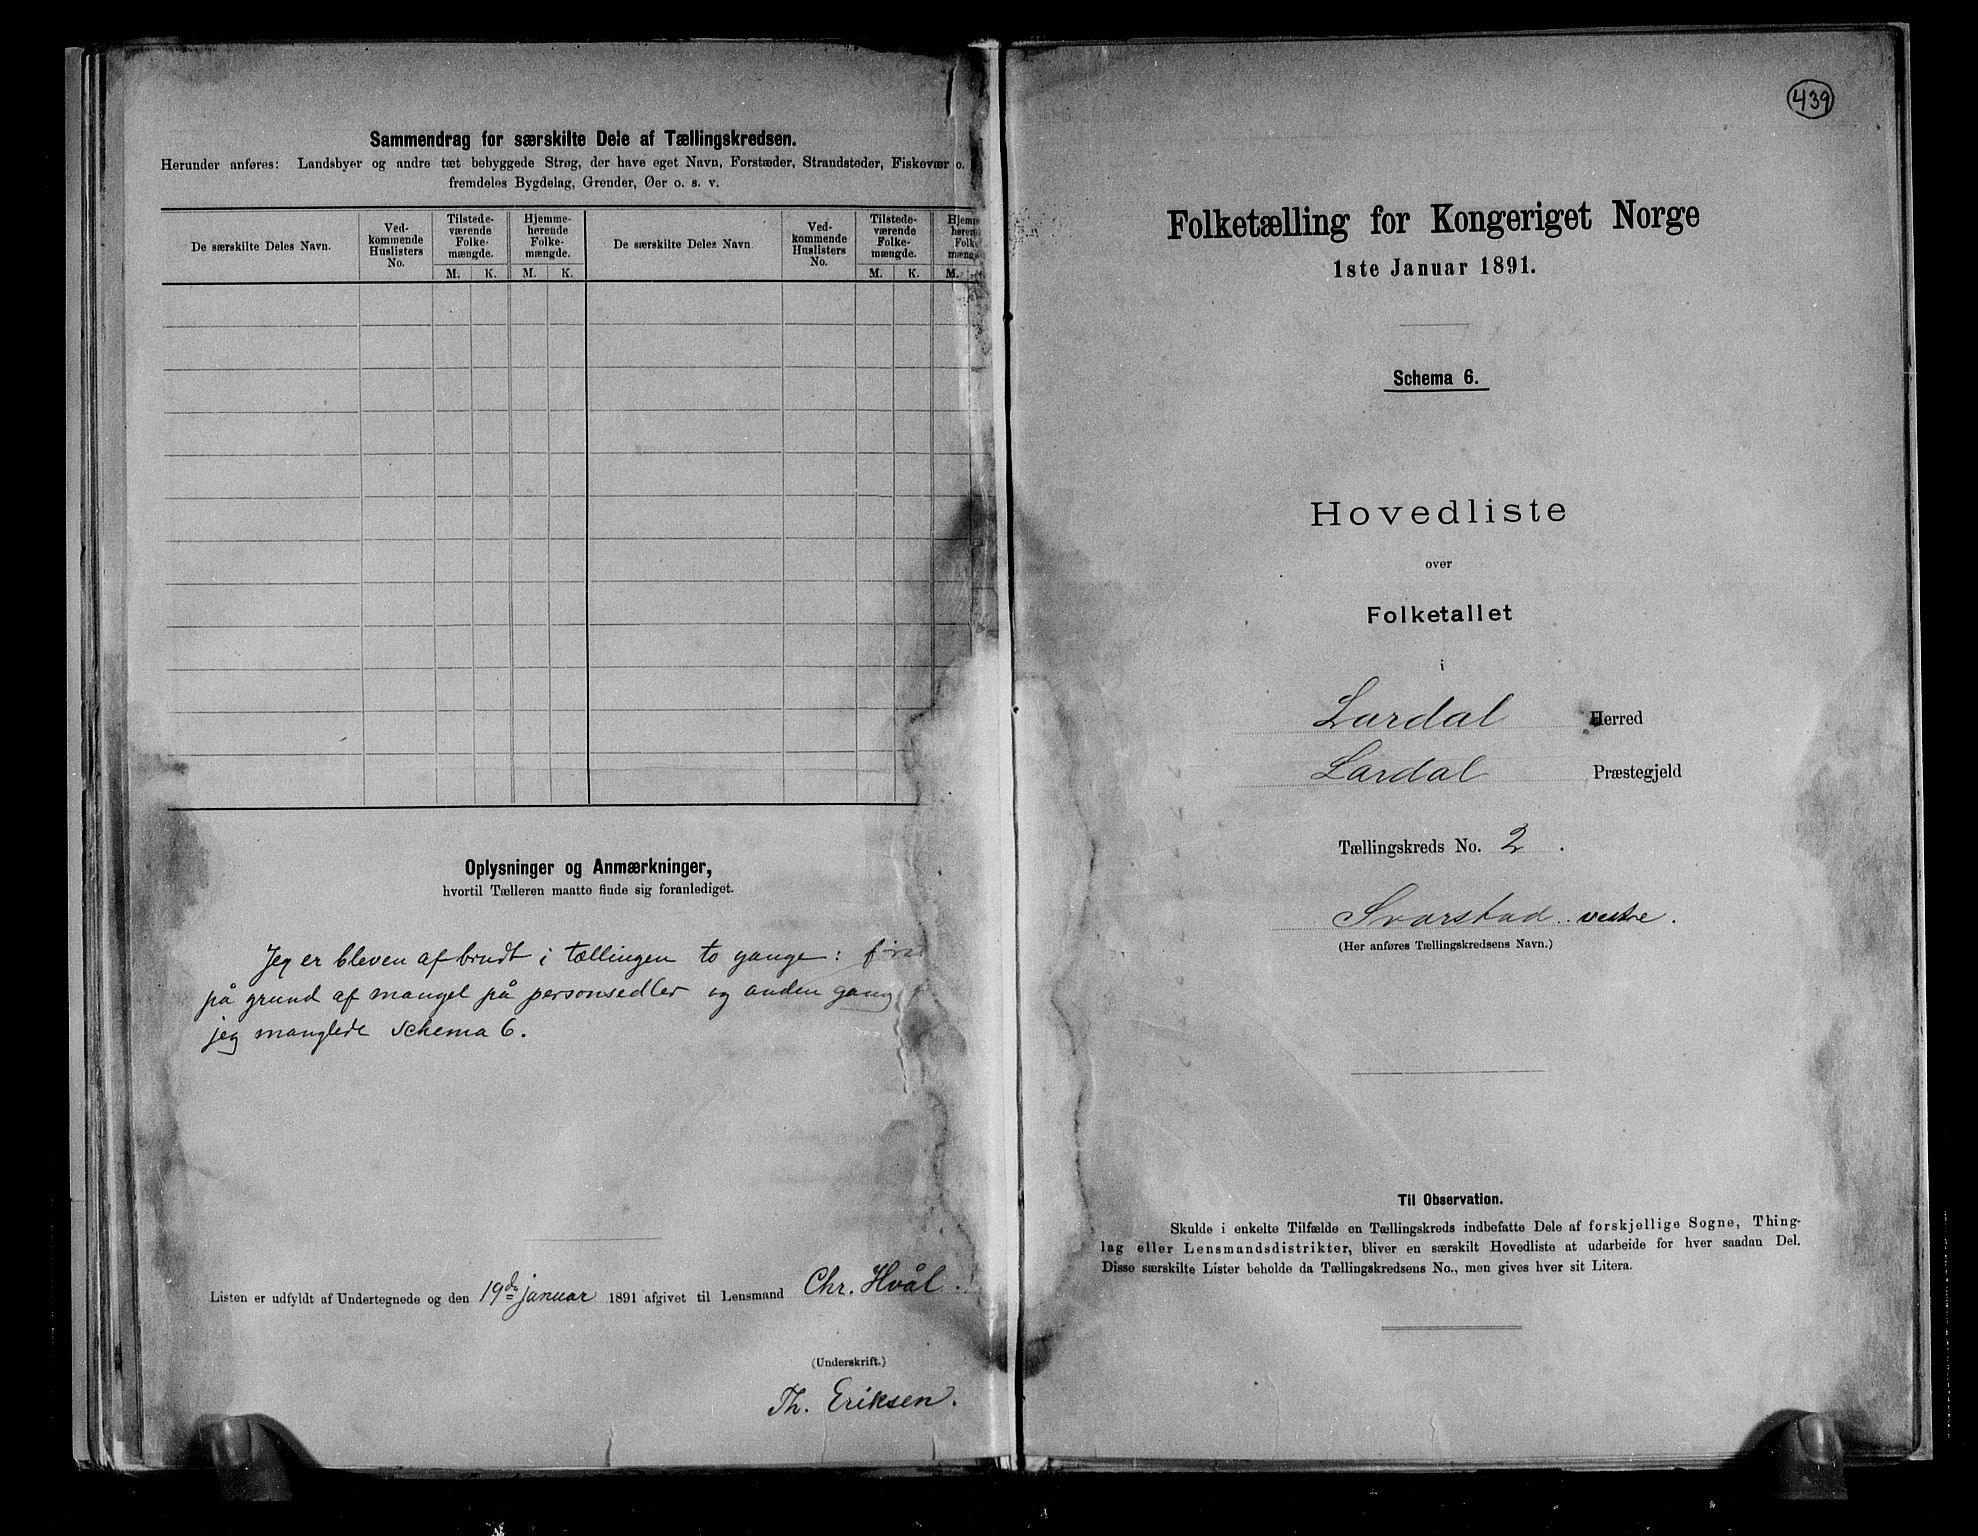 Sammendrag for særskilte Dele af Tællingskredsen.
Herunder anføres: Landsbyer og andre tæt bebyggede Strøg, der have eget Navn, Forstæder, Strandsteder, Fiskevær o.
fremdeles Bygdelag, Grender, Øer o. s. v.
De særskilte Deles Navn.
Ved-
kommende
Huslisters
No.
Tilstede-
værende
Folke-
mængde.
Hjemme-
hørende
Folke-
mængde.
De særskilte Deles Navn.
Ved-
kommende
Huslisters
No.
Tilstede-
værende
Folke-
mængde.
M. K. M. K. M. K. M.
Oplysninger og Anmærkninger,
hvortil Tælleren maatte finde sig foranlediget.
Jeg er bleven afbrudt i tællingen to gange:
på grund af mangel på personsedler og anden gang
jeg manglede schema 6.
Listen er udfyldt af Undertegnede og den 19de januar 1891 afgivet til Lensmand Chr. Hvål.
(Underskrift.)
Th. Eriksen.
439
Folketælling for Kongeriget Norge
1ste Januar 1891.
Schema 6.
Hovedliste
over
Folketallet
i
Lardal Herred
Lardal Præstegjeld
Tællingskreds No. 2.
Svarstad vestre.
(Her anføres Tællingskredsens Navn.)
Til Observation.
Skulde i enkelte Tilfælde en Tællingskreds indbefatte Dele af forskjellige Sogne, Thing-
lag eller Lensmandsdistrikter, bliver en særskilt Hovedliste at udarbeide for hver saadan Del.
Disse særskilte Lister beholde da Tællingskredsens No., men gives hver sit Litera.